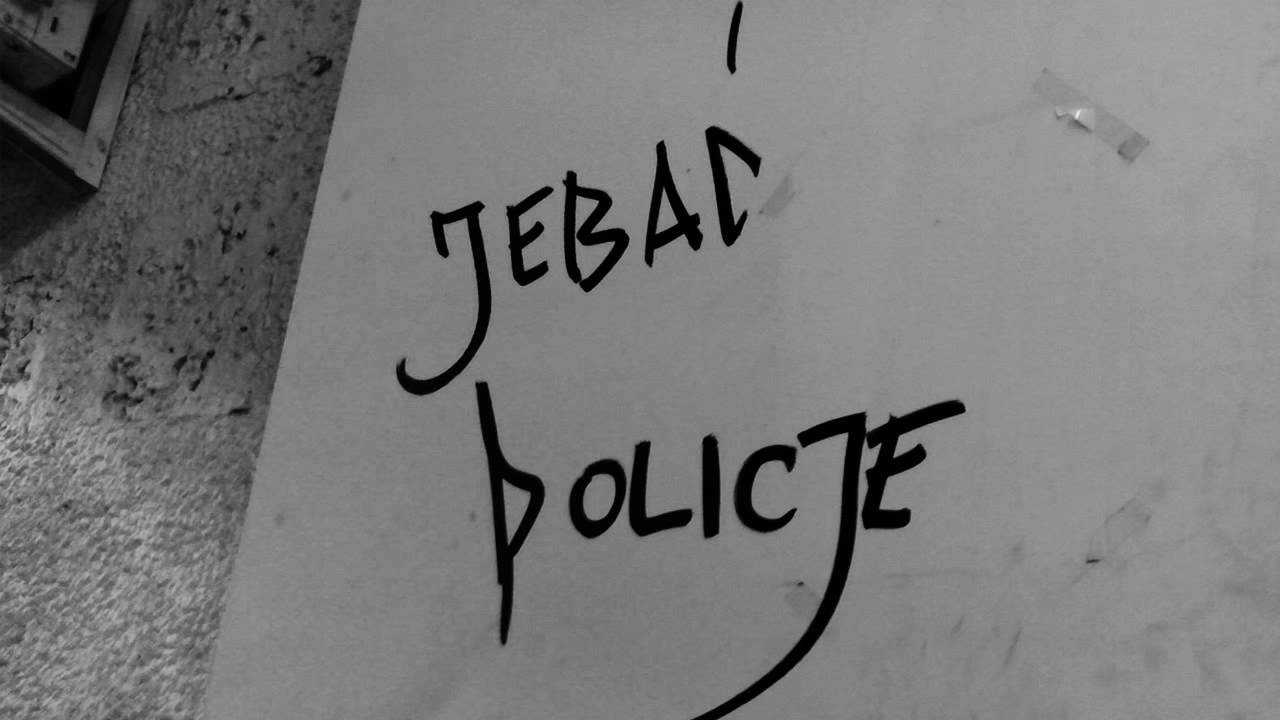 JEBAĆ
POLICJE